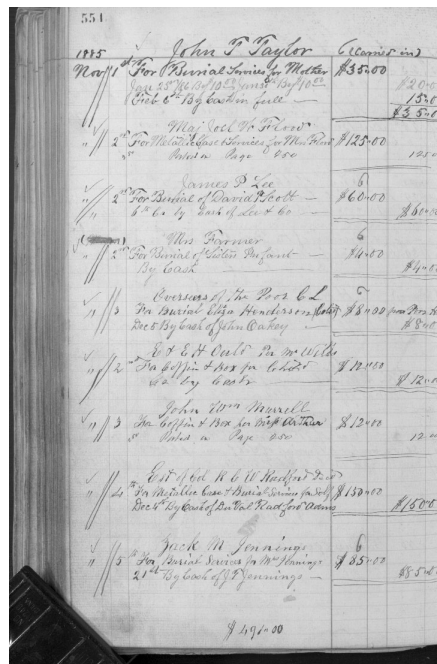 554
1885 John T Taylor (Carried in)
Nov 1st For Burial Services for Mother $35.00
Jan 25th By $10.00 By 10.00 $20.00
Feb 6th By Cash in full 15.00
$35.00
Maj Joel W Flood
" 2nd For Metallic Case & Services for Mrs Flood $125.00
" Posted on Page 250 125.00
James P Lee 6
" 2nd For Burial of David P Scott $60.00
6th Co by Cash of Lee & Co $60.00
Mrs Farmer 6
2nd For Burial of Sisters Infant $4.00
By Cash $4.00
Overseer of The Poor C L 6
" 3 For Burial Eliza Henderson Cold $8.00
Dec 5 By Cash of John Oakey $8.00
E & E H Ould Per Mr Wills
" 2 For Coffin & Box for Child $12.00
Co by Cash $12.00
John Wm Murrell
" 3 For Coffin & Box per Miss Arthur $12.00
" Posted on Page 250 12.00
Est of Col R C W Radford Decd
" 4th For Metallic Case & Burial Services for Self $150.00
Dec 5th By Cash of Radford Admr $150.00
Jack M Jennings 6
" 5 For Burial Services for Mrs Jennings $85.00
21st By Cash of J T Jennings $85.00
$491.00